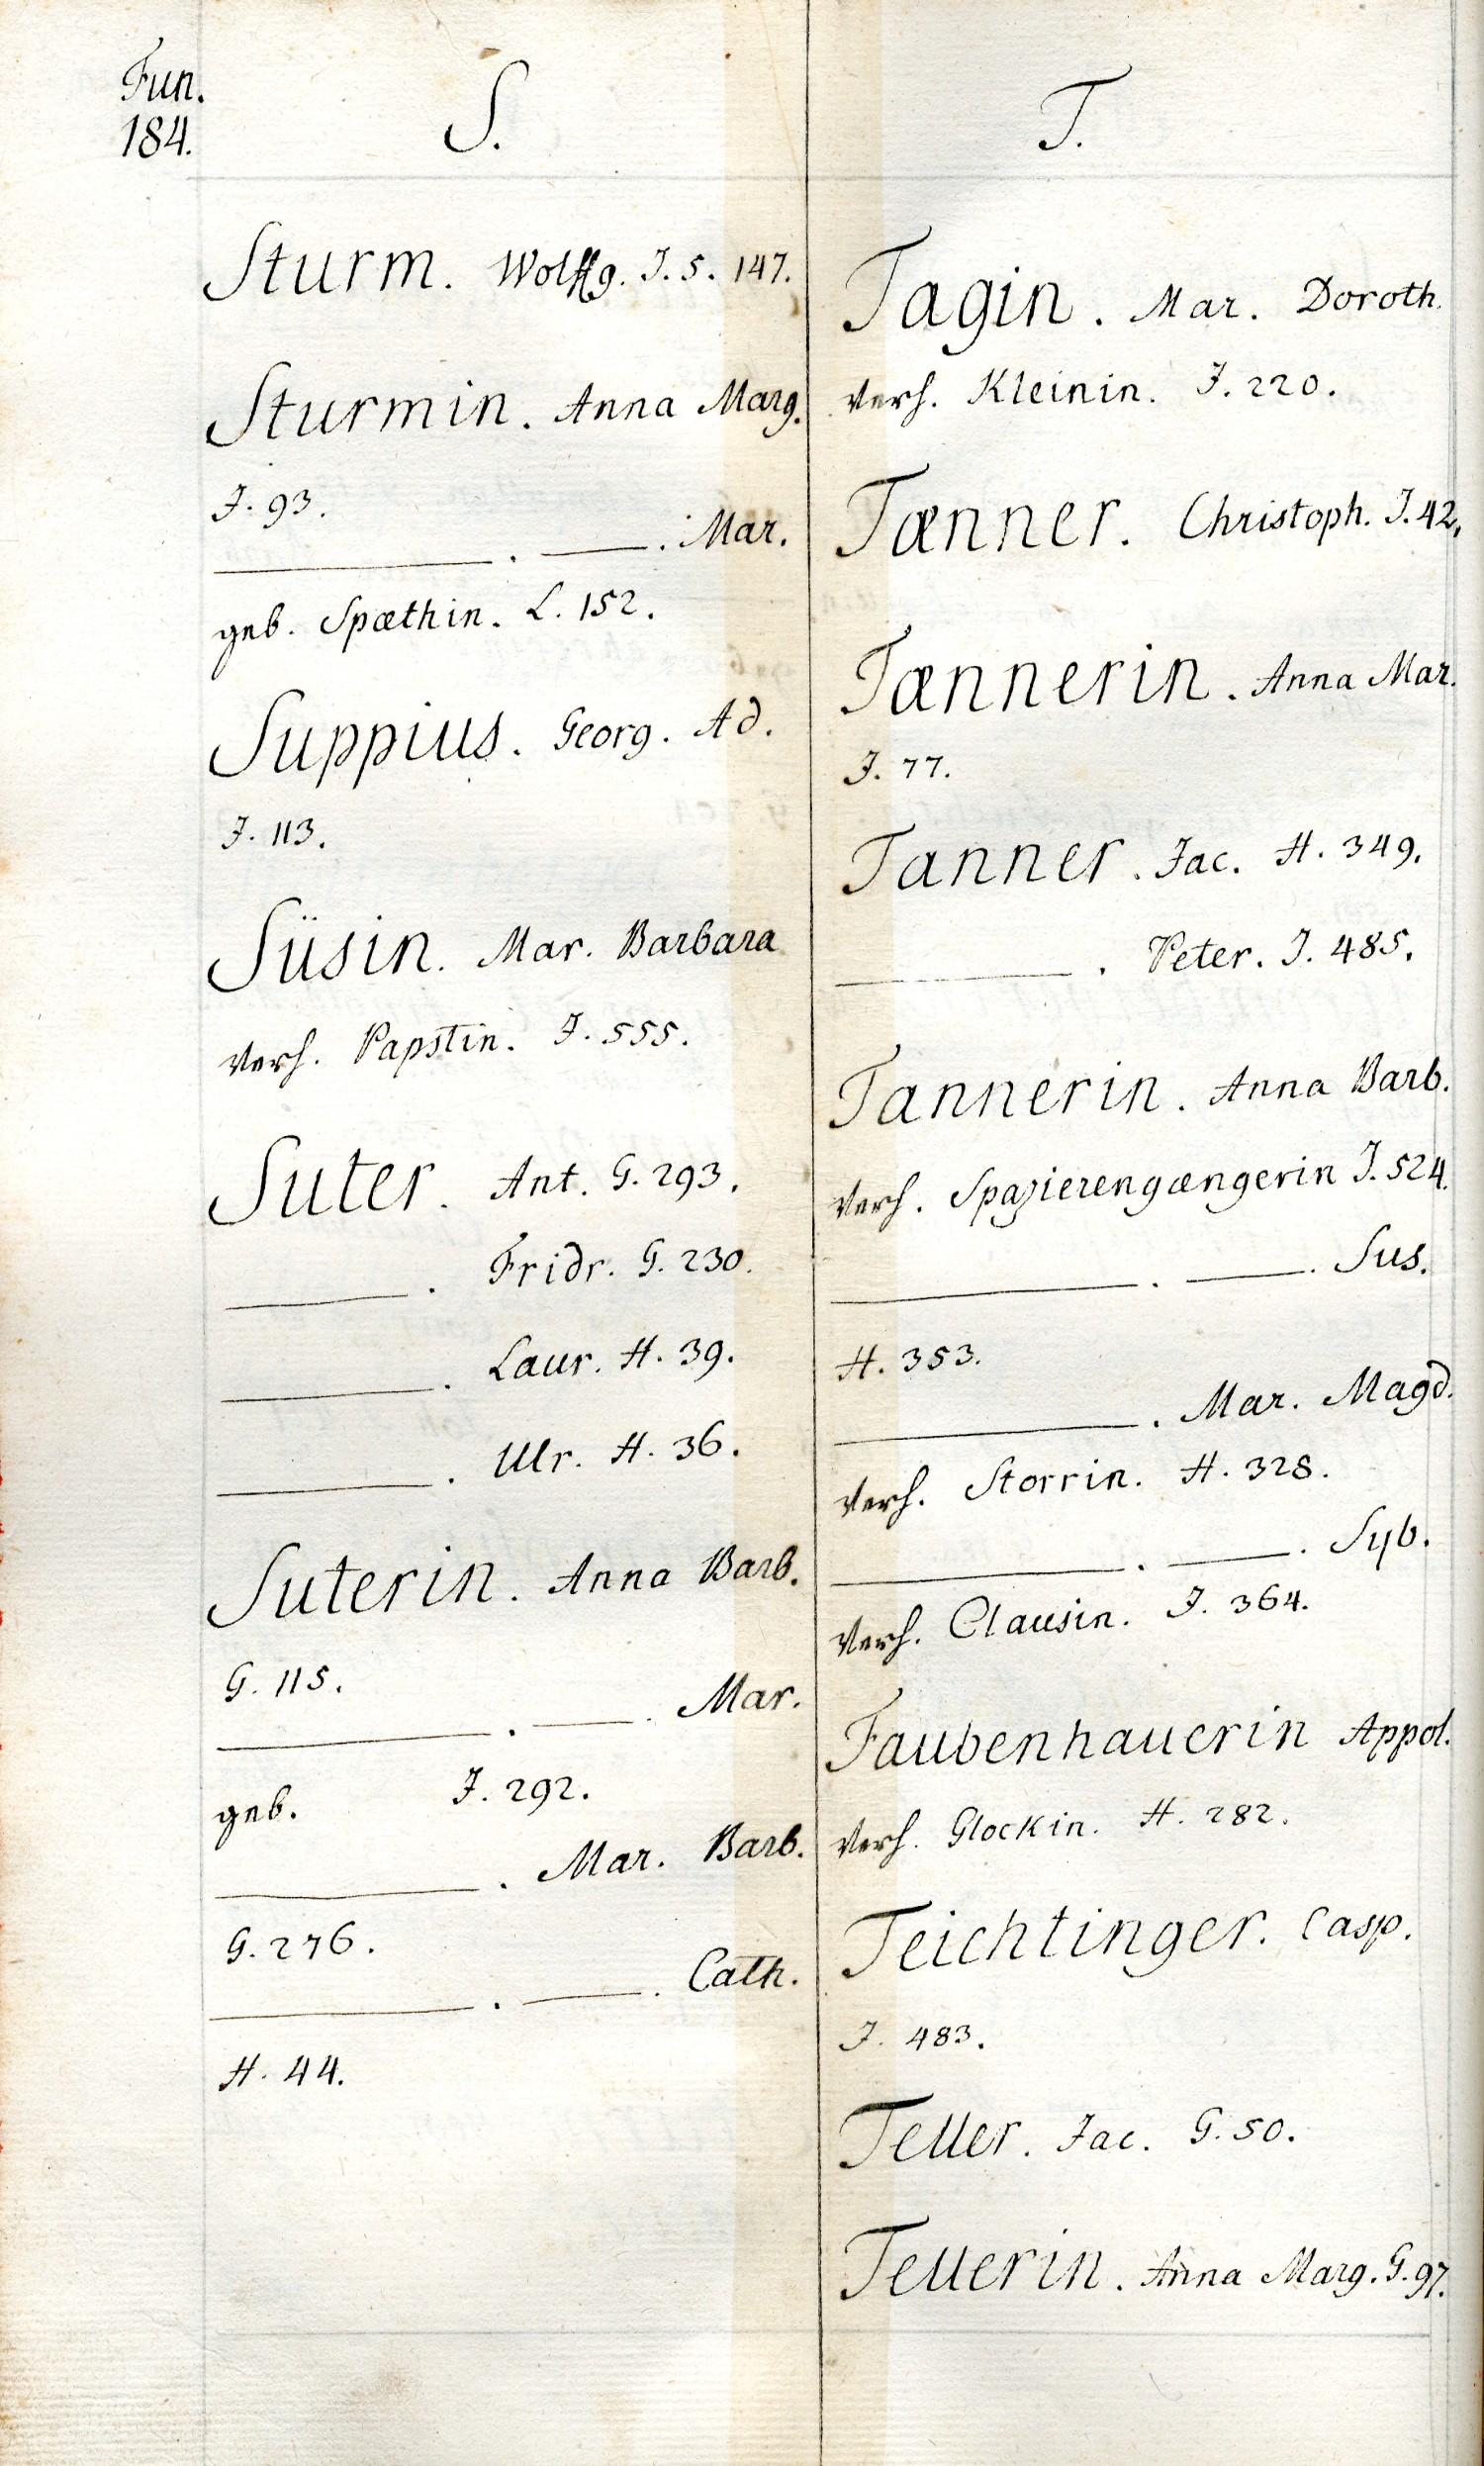 Fun.
184.
S.
Sturm. Wolffg. J. 5. 147.
Sturmin. Anna Marg.
J. 93.
———. ———. Mar.
geb. Spæthin. L. 152.
Suppius. Georg. Ad.
J. 113.
Süsin. Mar. Barbara
verh. Papstin. J. 555.
Suter. Ant. G. 293.
———. Fridr. G. 230.
———. Laur. H. 39.
———. Ulr. H. 36.
Suterin. Anna Barb.
G. 115.
———. ———. Mar.
geb. J. 292.
———. Mar. Barb.
G. 276.
———. ———. Cath.
H. 44.
T.
Tagin. Mar. Doroth.
verh. Kleinin. J. 220.
Tænner. Christoph. J. 42.
Tænnerin. Anna Mar.
J. 77.
Tanner. Jac. H. 349.
———. Peter. J. 485.
Tannerin. Anna Barb.
verh. Spazierengængerin J. 524.
———. ———. Sus.
H. 353.
———. Mar. Magd.
verh. Storrin. H. 328.
———. ———. Syb.
verh. Clausin. J. 364.
Taubenhauerin Appol.
verh. Glockin. H. 282.
Teichtinger. Casp.
J. 483.
Teller. Jac. G. 50.
Tellerin. Anna Marg. G. 97.